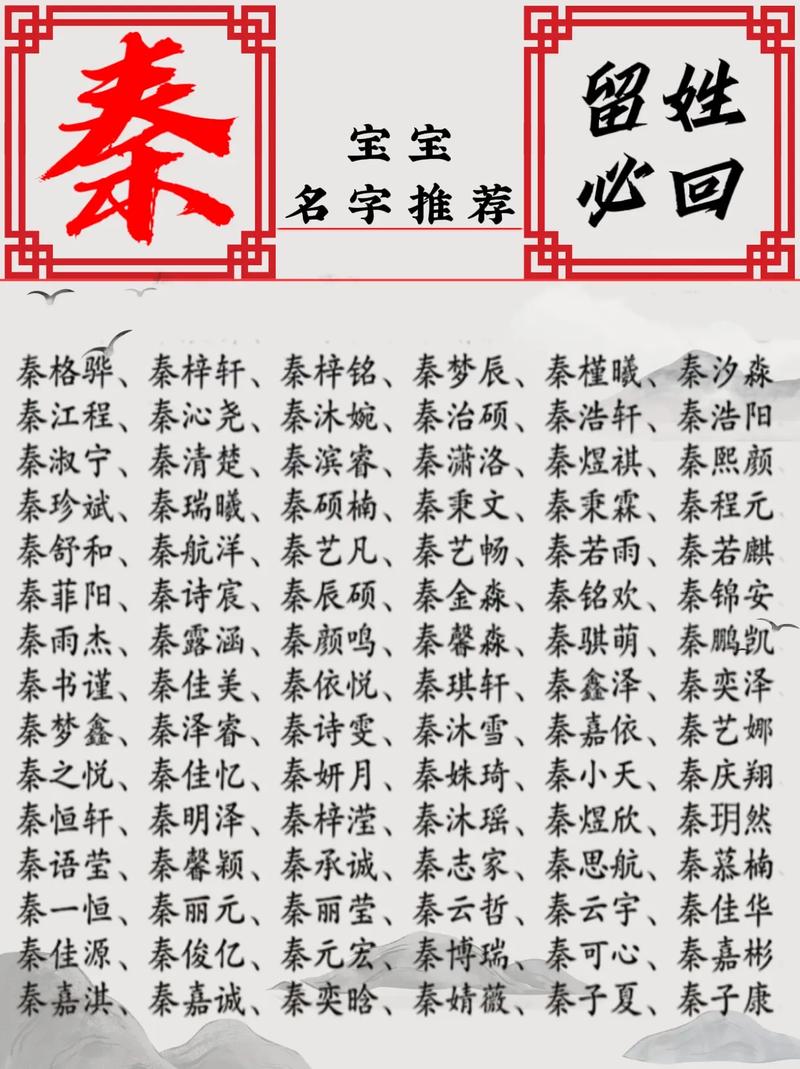 秦
宝宝
名字推荐
留姓
必回
秦格骅、秦梓轩、秦梓铭、秦梦辰、秦槿曦、秦汐淼
秦江程、秦沁尧、秦沐婉、秦治硕、秦浩轩、秦浩阳
秦淑宁、秦清楚、秦滨睿、秦潇洛、秦煜祺、秦熙颜
秦珍斌、秦瑞曦、秦硕楠、秦秉文、秦秉霖、秦程元
秦舒和、秦航洋、秦艺凡、秦艺畅、秦若雨、秦若麒
秦菲阳、秦诗宸、秦辰硕、秦金淼、秦铭欢、秦锦安
秦雨杰、秦露涵、秦颜鸣、秦馨淼、秦骐萌、秦鹏凯
秦书谨、秦佳美、秦依悦、秦琪轩、秦鑫泽、秦奕泽
秦梦鑫、秦泽睿、秦诗雯、秦沐雪、秦嘉依、秦艺娜
秦之悦、秦佳忆、秦妍月、秦姝琦、秦小天、秦庆翔
秦恒轩、秦明泽、秦梓滢、秦沐瑶、秦煜欣、秦玥然
秦语莹、秦馨颖、秦承诚、秦志家、秦思航、秦慕楠
秦一恒、秦丽元、秦丽莹、秦云哲、秦云宇、秦佳华
秦佳源、秦俊亿、秦元宏、秦博瑞、秦可心、秦嘉彬
秦嘉淇、秦嘉诚、秦奕晗、秦婧薇、秦子夏、秦子康